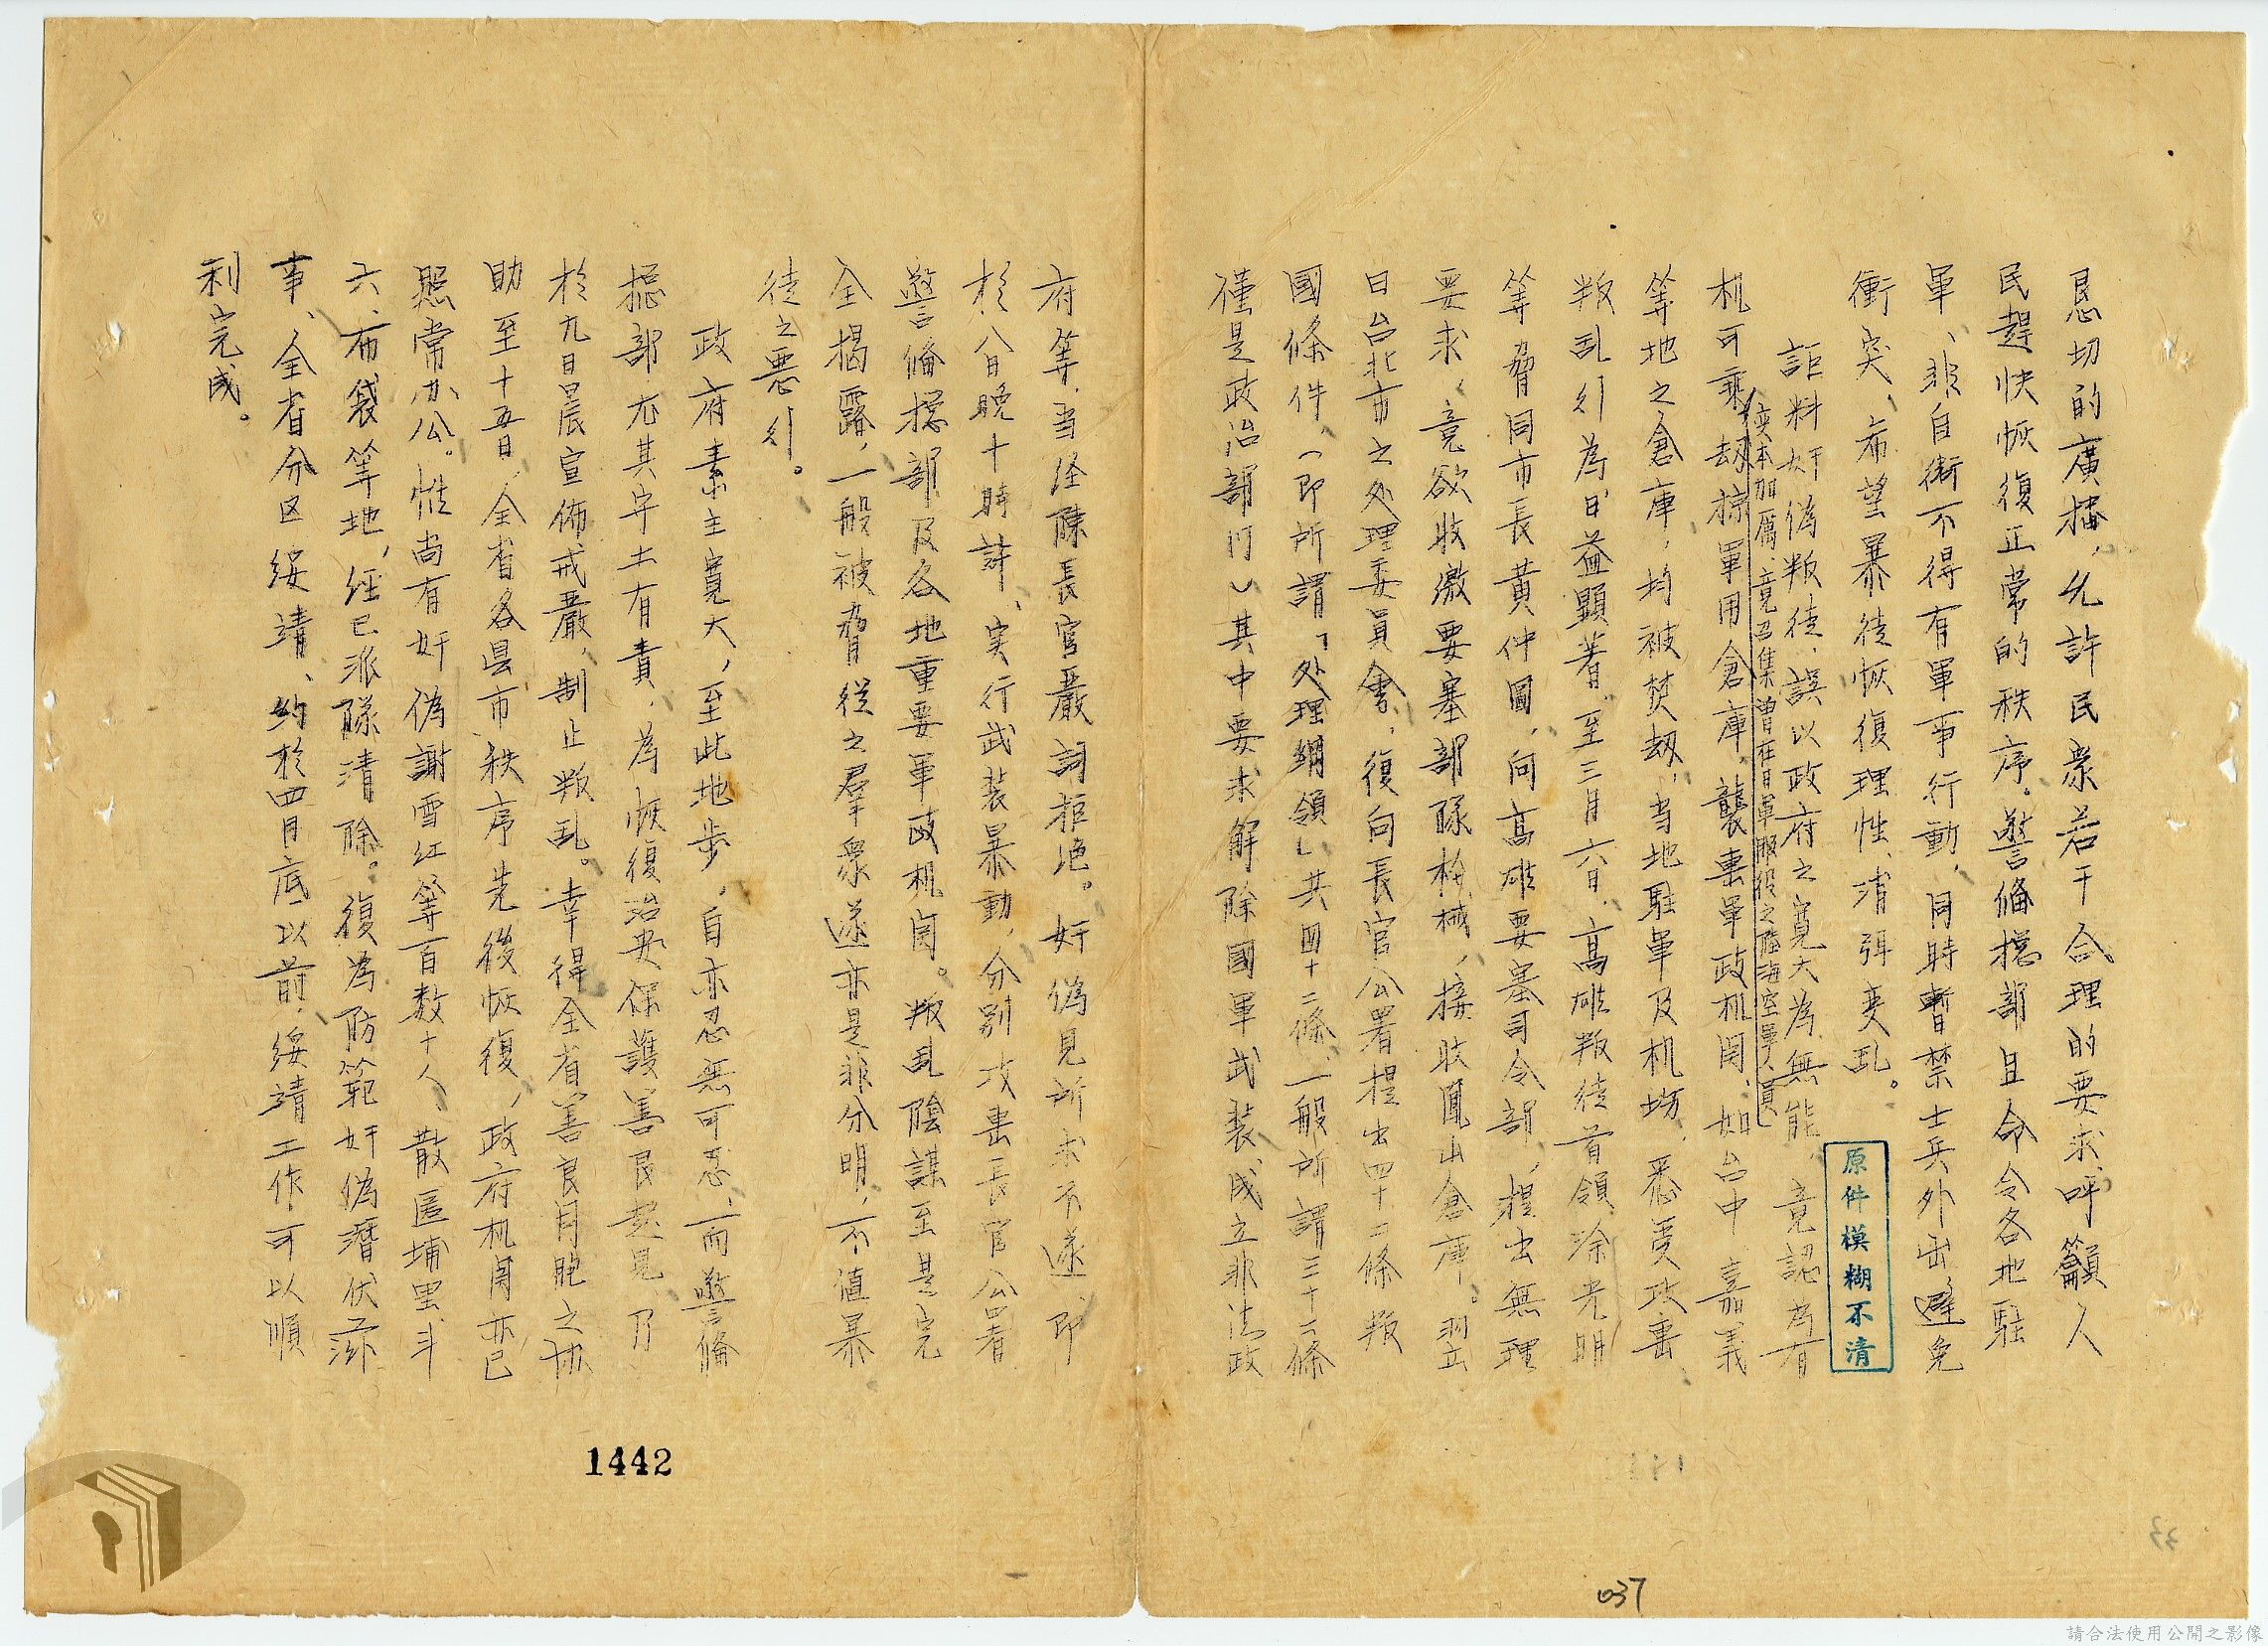 懇切的廣播，允許民衆若干合理的要求，呼籲人
民趕快恢復正常的秩序。警備總部且命令各地駐
軍、非自衛不得有軍事行動，同時暫禁士兵外出，避免
衝突、希望暴徒恢復理性、消弭变乱。
詎料奸偽叛徒，誤以政府之寬大為無能，竟認為有
机可乘，
变本加厲、竟召集曾在日軍服役之陸海空軍人員
劫掠軍用倉庫，襲击軍政机関，如台中嘉義
等地之倉庫，均被焚刼，当地駐軍及机場，悉受攻击，
叛乱行為日益顯著。至三月六日，高雄叛徒首領涂光明
等脅同市長黃仲圖，向高雄要塞司令部，提出無理
要求，竟欲收繳要塞部隊枪械，接收鳳山倉庫。翌
日台北市之处理委員會，復向長官公署提出四十二條叛
國條件，（即所謂「处理綱領」共四十二條，一般所謂三十二條
僅是政治部门）其中要求解除國軍武装，成立非法政
府等，当经陳長官嚴詞拒绝。奸偽見所求不遂，即
於八日晚十時許、实行武装暴動，分别攻击長官公署
警備總部及各地重要軍政机関。叛乱陰謀至是完
全揭露，一般被脅從之羣衆遂亦是非分明，不值暴
徒之惡行。
政府素主寬大，至此地步，自亦忍無可忍，而警備
總部尤其守土有責，為恢復治安保護善良起見，乃
於九日晨宣佈戒嚴，制止叛乱。幸得全省善良同胞之协
助至十五日，全省各县市秩序先後恢復，政府机関亦已
照常办公。惟尚有奸偽謝雪红等百数十人、散匿埔里斗
六、布袋等地，经已派隊清除。復為防範奸偽潛伏滋
事、全省分区綏靖、約於四月底以前，綏靖工作可以順
利完成。
原件模糊不清
1442
037
33
請合法使用公開之影像